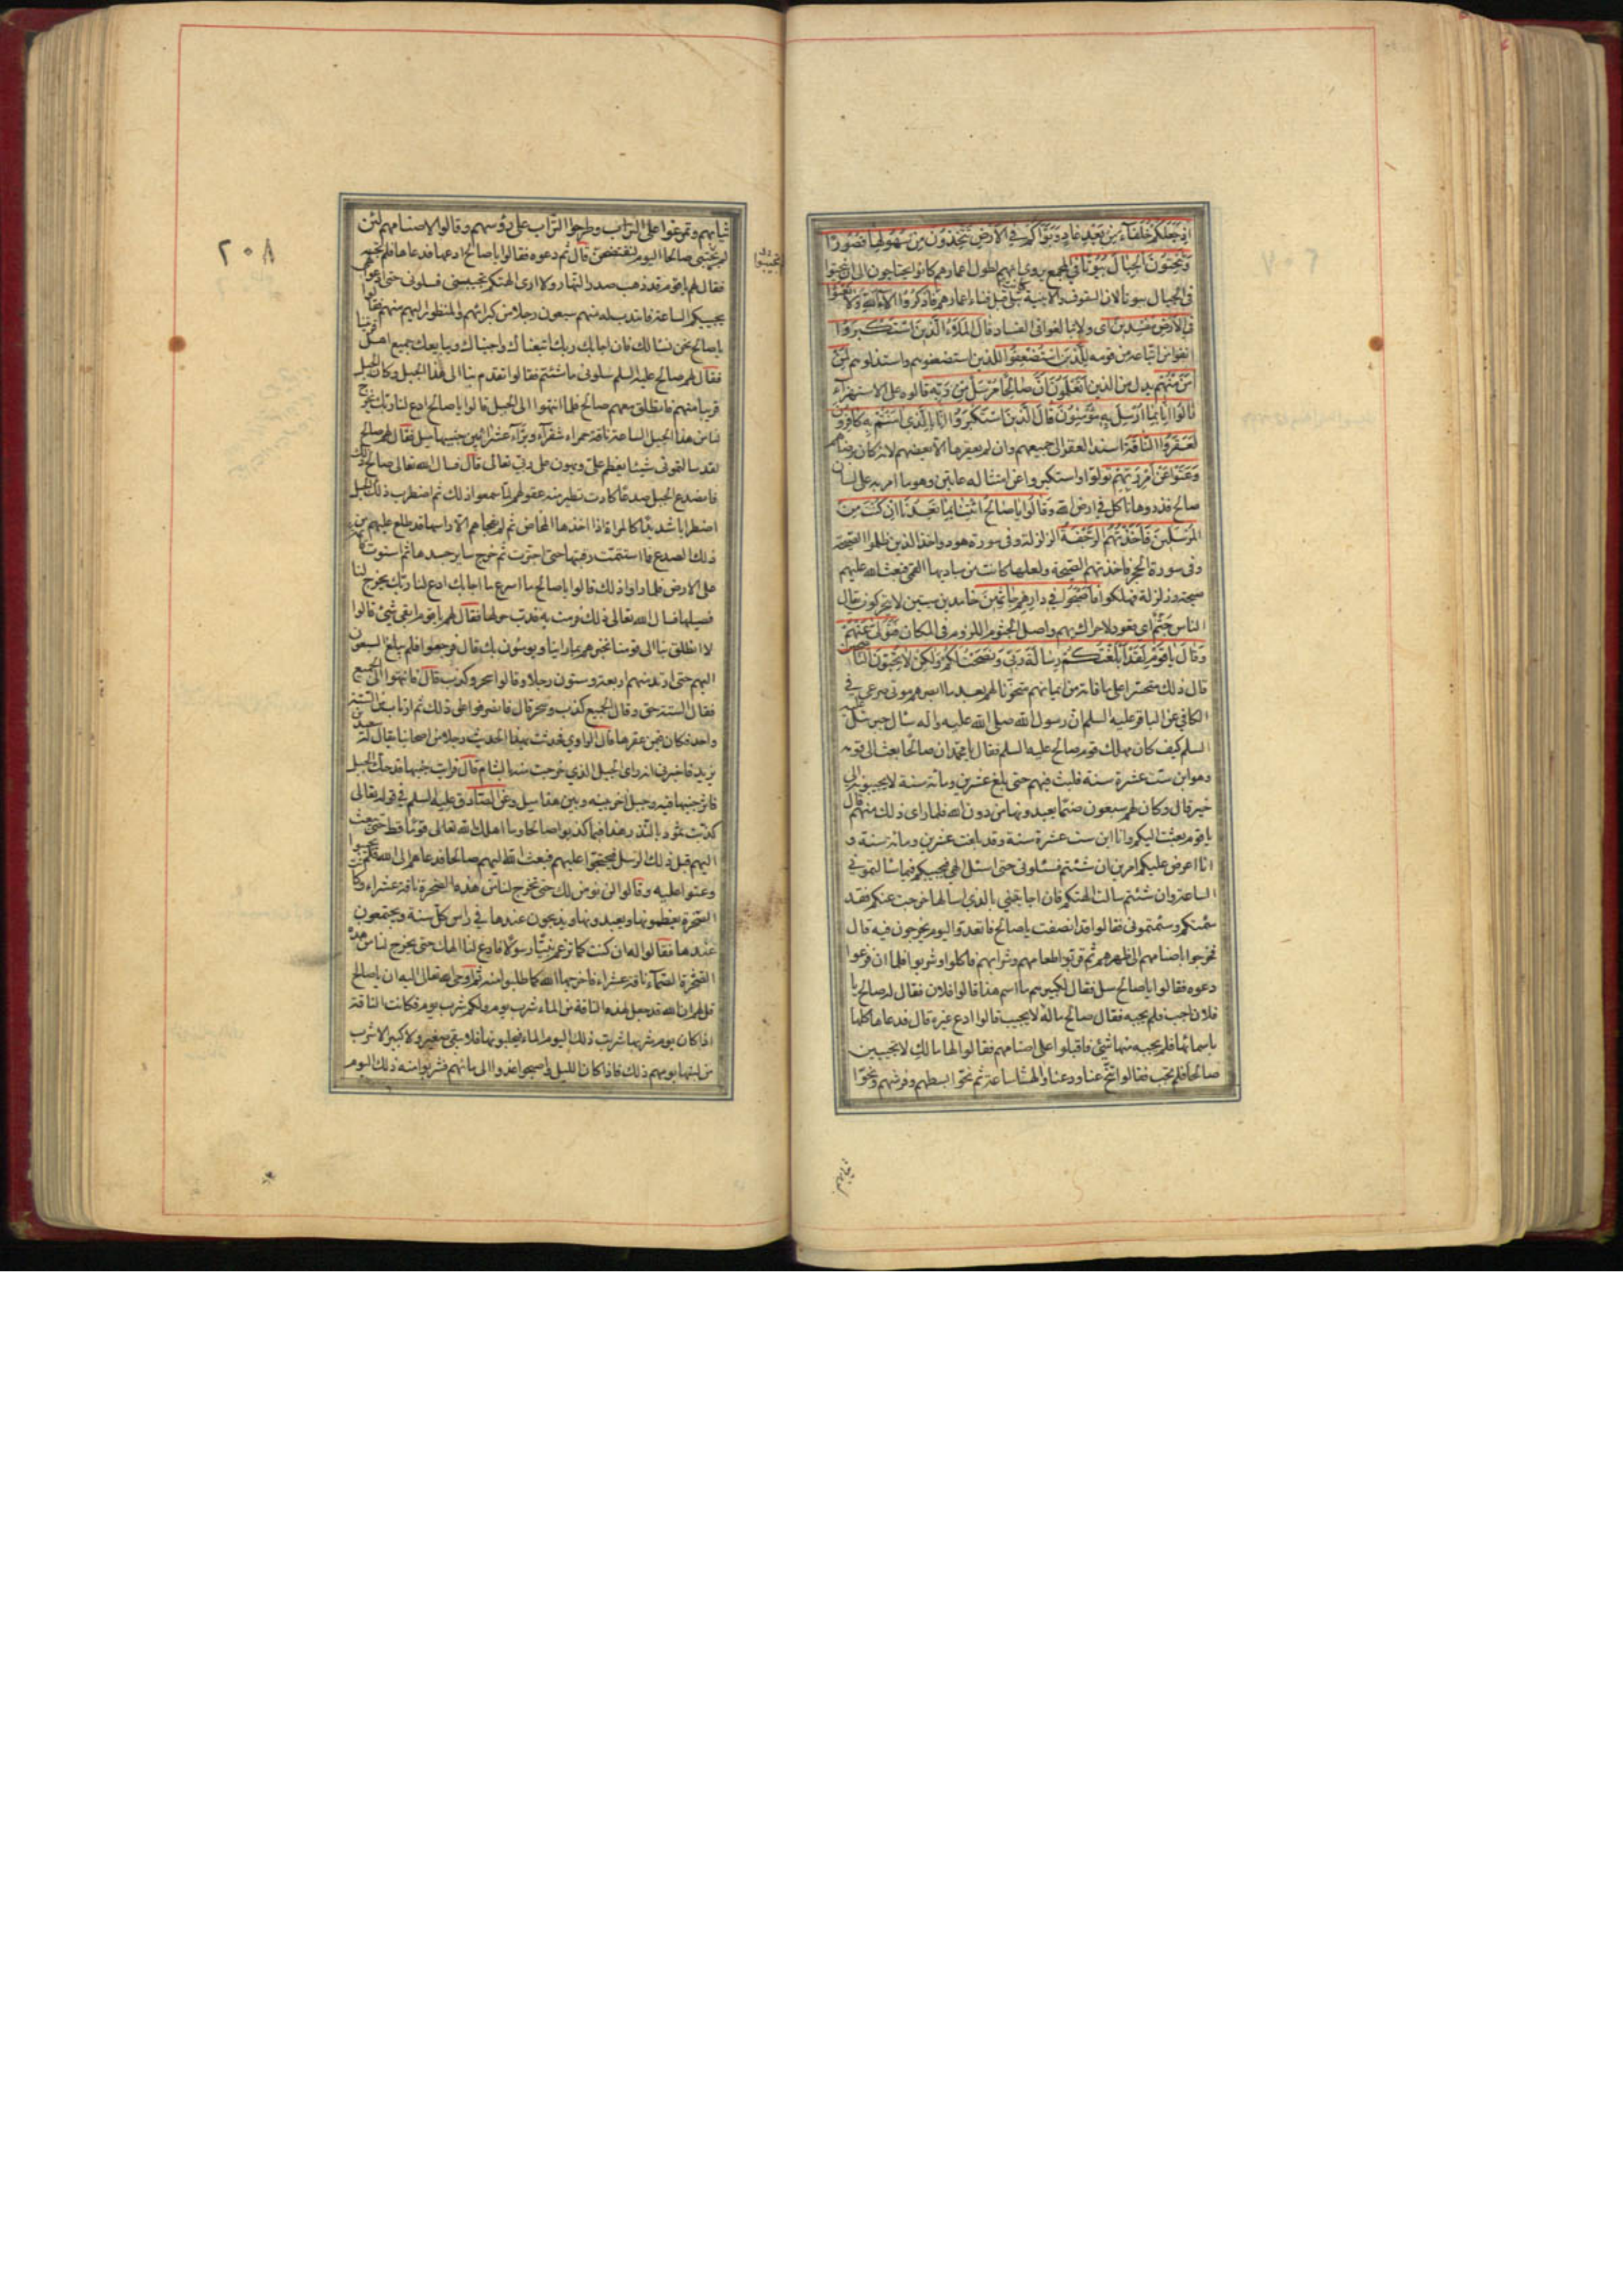 اذ جعلكم خلفاء من بعد عاد وبوّاكم في الارض تتخذون من سهولها قصورا
وتنحتون الجبال بيوتا في المجمع يروى انهم لطول اعمارهم كانوا يحتاجون الى ان ينحتوا
في الجبال بيوتا لان السقوف والابنية كانت تبلى قبل فناء اعمارهم فاذكروا الاء الله ولا تعثوا
في الارض مفسدين اى ولا تبالغوا في الفساد قال الملاء الذين استكبروا
انفوا من اتباعه من قومه للذين استضعفوا للذين استضعفوهم واستذلوهم لمن
امن منهم بدل من الذين اتعلمون ان صالحا مرسل من ربه قالوه على الاستهزاء
قالوا انا بما ارسل به مؤمنون قال الذين استكبروا انا بالذي امنتم به كافرون
فعقروا الناقة اسند العقر الى جميعهم وان لم يعقرها الا بعضهم لانه كان برضاهم
وعتوا عن امر ربهم تولوا واستكبروا عن امتثاله عاتين وهو ما امر به على لسان
صالح فذروها تاكل في ارض الله وقالوا يا صالح ائتنا بما تعدنا ان كنت من
المرسلين فاخذتهم الرجفة الزلزلة وفي سورة هود واخذ الذين ظلموا الصيحة
وفي سورة الحجر فاخذتهم الصيحة ولعلها كانت من مباديها القمى فبعث الله عليهم
صيحة وزلزلة فهلكوا فاصبحوا في دارهم جاثمين خامدين ميتين لا يتحركون يقال
الناس جثم اى قعود لا حراك بهم واصل الجثوم اللزوم في المكان فتولى عنهم
وقال يا قوم لقد ابلغتكم رسالة ربي ونصحت لكم ولكن لا تحبون الناصحين
قال ذلك متحسرا على ما فاته من ايمانهم متحزنا لهم بعد ما ابصرهم موتى صرعى في
الكافي عن الباقر عليه السلم ان رسول الله صلى الله عليه واله سال جبرئيل عليه
السلم كيف كان مهلك قوم صالح عليه السلم فقال يا محمد ان صالحا بعث الى قومه
وهو ابن ست عشرة سنة فلبث فيهم حتى بلغ عشرين ومائة سنة لا يجيبونه الى
خير قال وكان لهم سبعون صنما يعبدونها من دون الله فلما راى ذلك منهم قال
يا قوم بعثت اليكم وانا ابن ست عشرة سنة وقد بلغت عشرين ومائة سنة و
انا اعرض عليكم امرين ان شئتم فسئلوني حتى اسئل الهي فيجيبكم فيما سالتموني
الساعة وان شئتم سالت الهتكم فان اجابتني بالذي اسالها خرجت عنكم فقد
سئمتكم وسئمتموني فقالوا قد انصفت يا صالح فاتعدوا ليوم يخرجون فيه قال
فخرجوا باصنامهم الى ظهرهم ثم قربوا طعامهم وشرابهم فاكلوا وشربوا فلما ان فرغوا
دعوه فقالوا يا صالح سل فقال لكبيرهم ما اسم هذا قالوا فلان فقال له صالح يا
فلان اجب فلم يجبه فقال صالح ماله لا يجيب قالوا ادع غيره قال فدعاها كلها
باسمائها فلم يجبه منها شئ فاقبلوا على اصنامهم فقالوا لها مالك لا تجيبين
صالحا فلم تجب فقالوا تنح عنا ودعنا والهتنا ساعة ثم نحوا بسطهم وفرشهم ونحوا
٢٠٨
ثيابهم وتمرغوا على التراب وطرحوا التراب على رؤسهم وقالوا لاصنامهم لئن
لم تجيبي صالحا اليوم لنفتضحن قال ثم دعوه فقالوا يا صالح ادعها فدعاها فلم تجبه
فقال لهم يا قوم قد ذهب صدر النهار ولا ارى الهتكم تجيبني فسلوني حتى ادعوا الهي
يجيبكم الساعة فانتدب له منهم سبعون رجلا من كبرائهم والمنظور اليهم منهم فقالوا
يا صالح نحن نسالك فان اجابك ربك اتبعناك واجبناك ويبايعك جميع اهل قريتنا
فقال لهم صالح عليه السلم سلوني ما شئتم فقالوا تقدم بنا الى هذا الجبل وكان الجبل
قريبا منهم فانطلق معهم صالح فلما انتهوا الى الجبل قالوا يا صالح ادع لنا ربك يخرج
لنا من هذا الجبل الساعة ناقة حمراء شقراء وبراء عشراء بين جنبيها ميل فقال لهم صالح
لقد سالتموني شيئا يعظم علي ويهون على ربي تعالى قال فسال الله تعالى صالح ذلك
فانصدع الجبل صدعا كادت تطير منه عقولهم لما سمعوا ذلك ثم اضطرب ذلك الجبل
اضطرابا شديدا كالمراة اذا اخذها المخاض ثم لم يفجاهم الا راسها قد طلع عليهم من
ذلك الصدع فما استتمت رقبتها حتى اجترت ثم خرج ساير جسدها ثم استوت قائمة
على الارض فلما راوا ذلك قالوا يا صالح ما اسرع ما اجابك ادع لنا ربك يخرج لنا
فصيلها فسال الله تعالى ذلك فرمت به فدب حولها فقال لهم يا قوم ابقي شيئ قالوا
لا انطلق بنا الى قومنا نخبرهم بما راينا ويومنون بك قال فرجعوا فلم يبلغ السبعون
اليهم حتى ارتد منهم اربعة وستون رجلا وقالوا سحر وكذب قال فانتهوا الى الجميع
فقال الستة حق وقال الجميع كذب وسحر قال فانصرفوا على ذلك ثم ارتاب من الستة
واحد فكان فيمن عقرها قال الراوي فحدثت بهذا الحديث رجلا من اصحابنا يقال له سعيد بن
يزيد فاخبرني انه راى الجبل الذي خرجت منه بالشام قال فرايت جنبها قد حك الجبل
فاثر جنبها فيه وجبل اخر بينه وبين هذا ميل وعن الصادق عليه السلم في قوله تعالى
كذبت ثمود بالنذر هذا فيما كذبوا صالحا وما اهلك الله تعالى قوما قط حتى يبعث
اليهم قبل ذلك الرسل فيحتجوا عليهم فبعث الله اليهم صالحا فدعاهم الى الله فلم يجيبوا
وعتوا عليه وقالوا لن نؤمن لك حتى تخرج لنا من هذه الصخرة ناقة عشراء وكانت
الصخرة يعظمونها ويعبدونها ويذبحون عندها في راس كل سنة ويجتمعون
عندها فقالوا له ان كنت كما تزعم نبيا رسولا فادع لنا الهك حتى يخرج لنا من هذه
الصخرة الصماء ناقة عشراء فاخرجها الله كما طلبوا منه ثم اوحى الله تعالى اليه ان يا صالح
قل لهم ان الله قد جعل لهذه الناقة من الماء شرب يوم ولكم شرب يوم فكانت الناقة
اذا كان يوم شربها شربت ذلك اليوم الماء فيحلبونها فلا يبقى صغير ولا كبير الا شرب
من لبنها يومهم ذلك فاذا كان الليل واصبحوا غدوا الى مائهم فشربوا منه ذلك اليوم